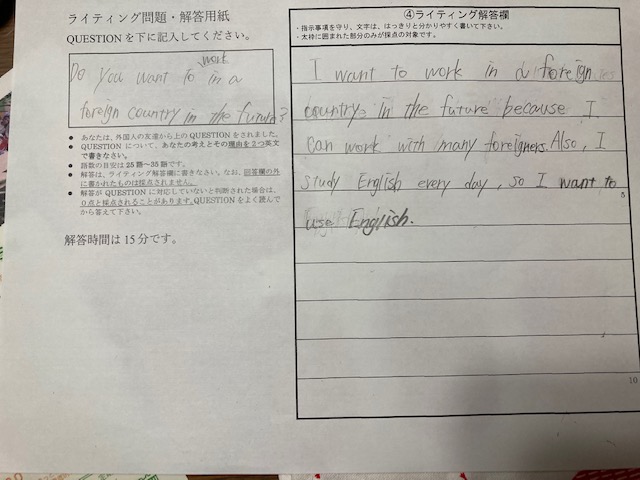 ライティング問題・解答用紙
QUESTIONを下に記入してください。
work
Do you want to in a
foreign country in the future?
● あなたは、外国人の友達から上のQUESTIONをされました。
● QUESTIONについて、あなたの考えとその理由を2つ英文
で書きなさい。
● 語数の目安は25語～35語です。
● 解答は、ライティング解答欄に書きなさい。なお、回答欄の外
に書かれたものは採点されません。
● 解答がQUESTIONに対応していないと判断された場合は、
0点と採点されることがあります。QUESTIONをよく読んで
から答えて下さい。
解答時間は15分です。
④ライティング解答欄
・指示事項を守り、文字は、はっきりと分かりやすく書いて下さい。
・太枠に囲まれた部分のみが採点の対象です。
I want to work in a foreign
country in the future because I
can work with many foreigners. Also, I
study English every day, so I want to
5
use English.
10